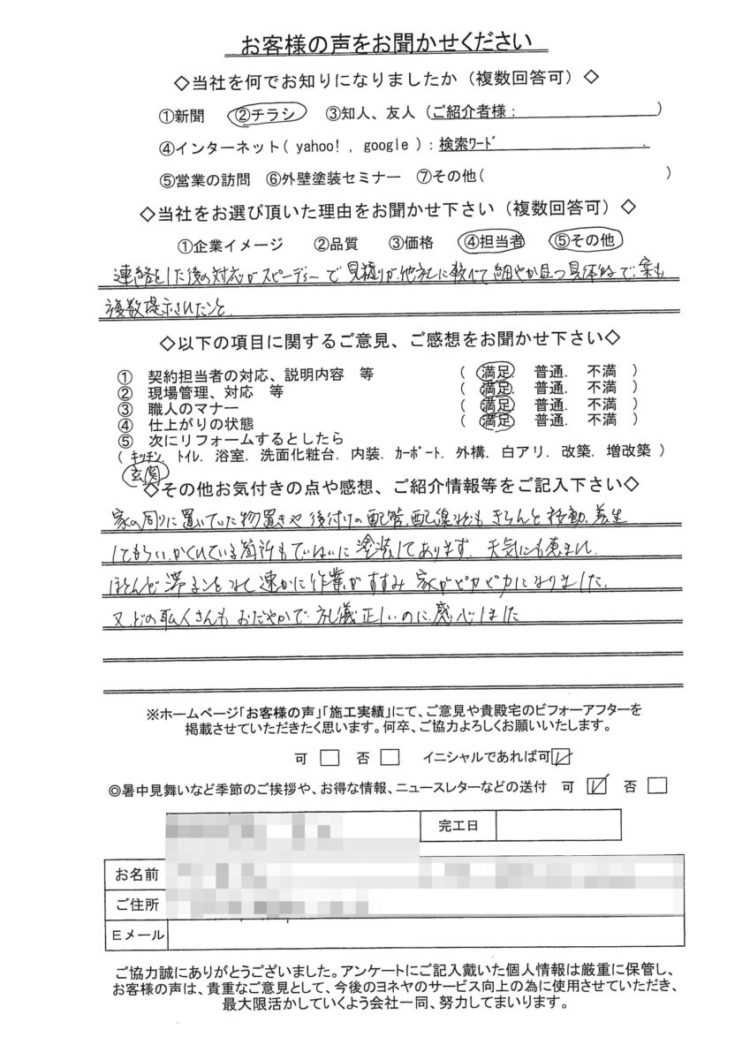 お客様の声をお聞かせください
◇当社を何でお知りになりましたか（複数回答可）◇
①新聞 ②チラシ ③知人、友人（ご紹介者様： ）
④インターネット( yahoo! , google )：検索ﾜｰﾄﾞ .
⑤営業の訪問 ⑥外壁塗装セミナー ⑦その他( )
◇当社をお選び頂いた理由をお聞かせ下さい（複数回答可）◇
①企業イメージ ②品質 ③価格 ④担当者 ⑤その他
連絡をした後の対応がスピーディーで見積りが他社に較べて細やか且つ具体的で、案も
複数提示されたこと
◇以下の項目に関するご意見、ご感想をお聞かせ下さい◇
① 契約担当者の対応、説明内容 等 ( 満足 普通. 不満 )
② 現場管理、対応 等 ( 満足. 普通. 不満 )
③ 職人のマナー ( 満足 普通. 不満 )
④ 仕上がりの状態 ( 満足 普通. 不満 )
⑤ 次にリフォームするとしたら
( ｷｯﾁﾝ. ﾄｲﾚ. 浴室. 洗面化粧台. 内装. ｶｰﾎﾟｰﾄ. 外構. 白アリ. 改築. 増改築 )
玄関
◇その他お気付きの点や感想、ご紹介情報等をご記入下さい◇
家の周りに置いていた物置きや後付けの配管、配線等もきちんと移動、養生
してもらい、かくれている箇所もていねいに塗装してあります。天気にも恵まれ、
ほとんど滞ることなく速かに作業がすすみ家がピカピカになりました。
又、どの職人さんもおだやかで礼儀正しいのに感心しました
※ホームページ「お客様の声」「施工実績」にて、ご意見や貴殿宅のビフォーアフターを
掲載させていただきたく思います。何卒、ご協力よろしくお願いいたします。
可 □ 否 □ イニシャルであれば可☑
◎暑中見舞いなど季節のご挨拶や、お得な情報、ニュースレターなどの送付 可 ☑ 否 □
完工日
お名前
ご住所
Eメール
ご協力誠にありがとうございました。アンケートにご記入戴いた個人情報は厳重に保管し、
お客様の声は、貴重なご意見として、今後のヨネヤのサービス向上の為に使用させていただき、
最大限活かしていくよう会社一同、努力してまいります。